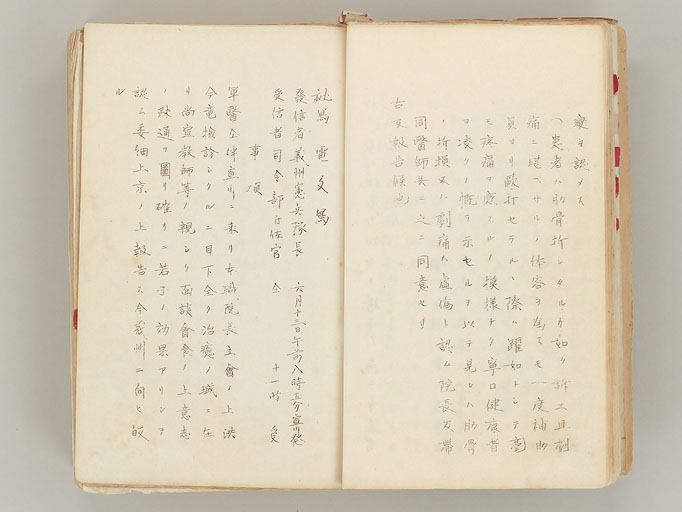 痕ヲ認メス
一、患者ハ肋骨折シタルカ如ク訴エ且劇
痛ニ堪ヘサルノ体容ヲ為スモ一度補助
員ヨリ殴打セラルヽ際ハ躍如トシテ毫
モ疼痛ヲ感スルノ模様ナク寧ロ健康者
ヲ凌クノ慨ヲ示セルヲ以テ見レハ肋骨
ノ折損又ハ劇痛ハ虚偽ト認ム院長及帯
同医師共ニ之ニ同意セリ
右及報告候也
秘写 電文写
發信者 義州憲兵隊長 六月十三日午前八時三分宣川發
受信者 司令部副官 仝 十一時 受
事項
軍醫ヲ伴宣川ニ来リ本職院長立會ノ上洪
今竜検診シタルニ目下全ク治癒ノ域ニ在
リ尚宣教師等ノ親シク面談會食ノ上意志
ノ疎通ヲ圖リ確カニ若干ノ効果アリシヲ
認ム委細上京ノ上報告ス今義州ニ向ヒ皈
ル